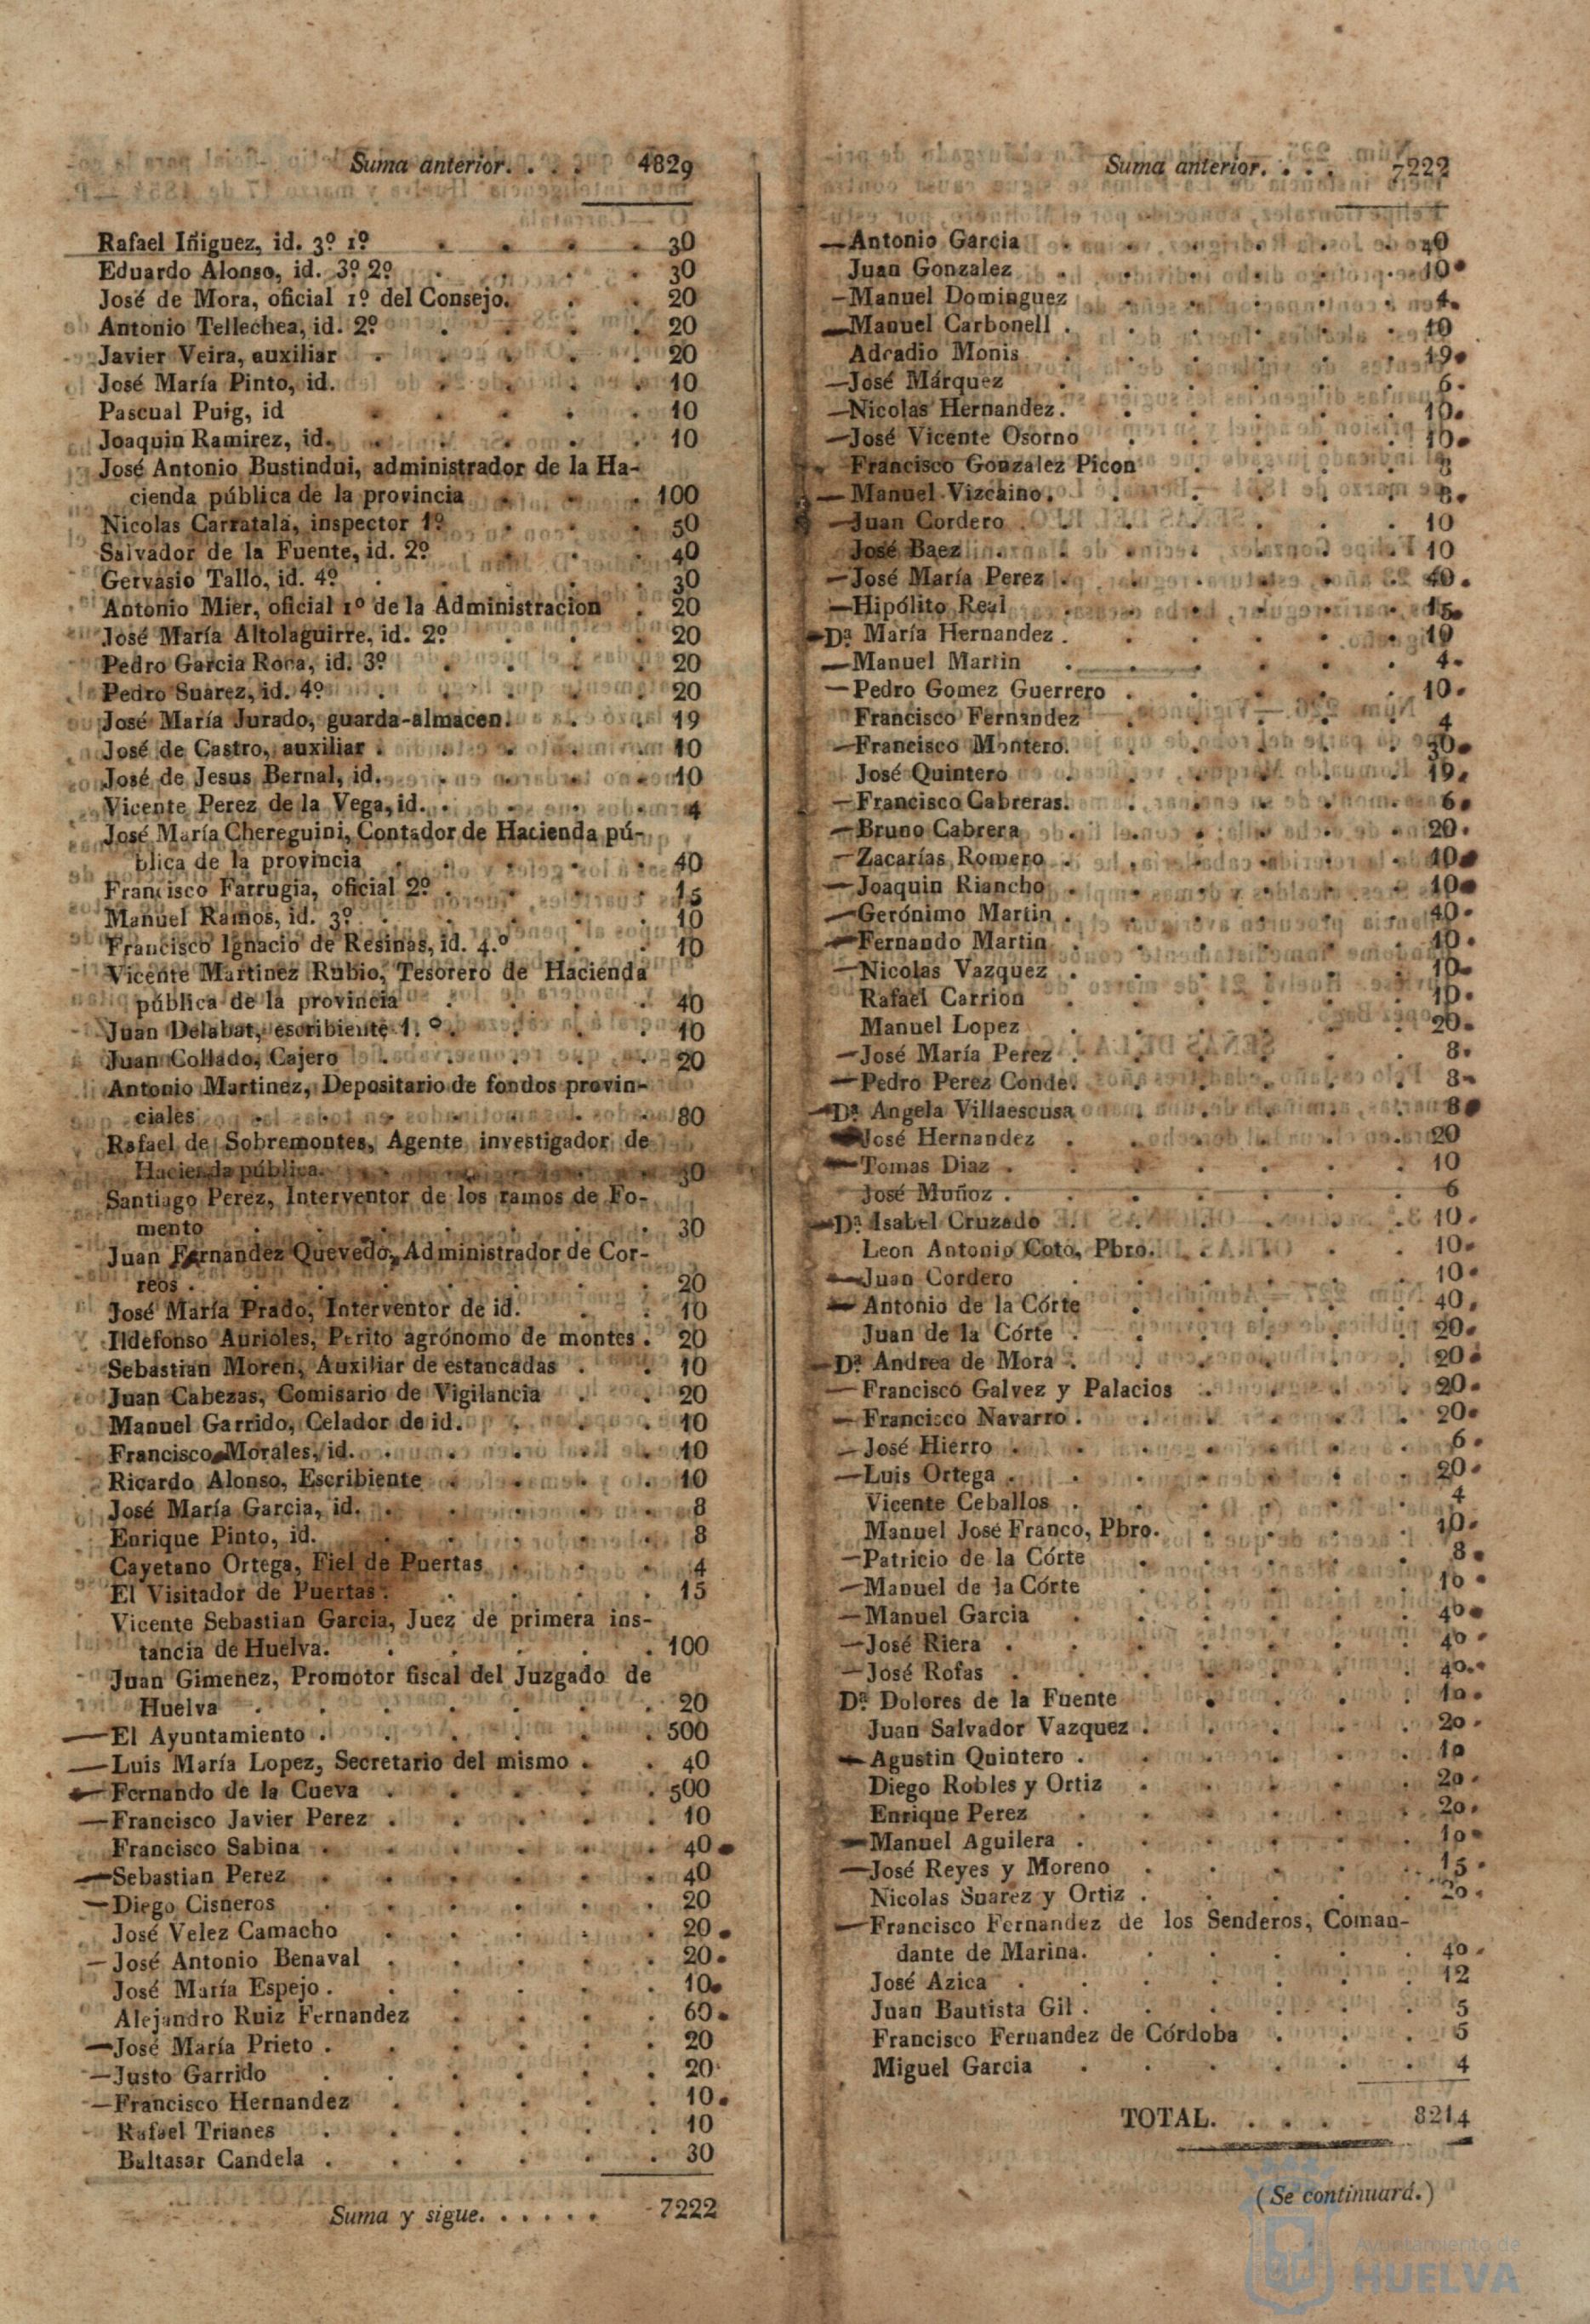 Suma anterior. . . . 4829
Rafael Iñiguez, id. 3º 1º . . . . 30
Eduardo Alonso, id. 3º 2º . . . . 30
José de Mora, oficial 1º del Consejo. . . 20
Antonio Tellechea, id. 2º . . . . 20
Javier Veira, auxiliar . . . . . 20
José María Pinto, id. . . . . 10
Pascual Puig, id . . . . . 10
Joaquin Ramirez, id. . . . . . 10
José Antonio Bustindui, administrador de la Ha-
cienda pública de la provincia . . . 100
Nicolas Carratalá, inspector 1º . . . 50
Salvador de la Fuente, id. 2º . . . 40
Gervasio Tallo, id. 4º . . . . . 30
Antonio Mier, oficial 1º de la Administracion . 20
José María Altolaguirre, id. 2º . . . 20
Pedro Garcia Roca, id. 3º . . . . 20
Pedro Suarez, id. 4º . . . . . 20
José María Jurado, guarda-almacen. . . 19
José de Castro, auxiliar . . . . . 10
José de Jesus Bernal, id. . . . . 10
Vicente Perez de la Vega, id. . . . . 4
José María Chereguini, Contador de Hacienda pú-
blica de la provincia . . . . . 40
Francisco Farrugia, oficial 2º . . . . 15
Manuel Ramos, id. 3º . . . . . 10
Francisco Ignacio de Resinas, id. 4.º . . 10
Vicente Martinez Rubio, Tesorero de Hacienda
pública de la provincia . . . . 40
Juan Delabat, escribiente 1.º . . . . 10
Juan Collado, Cajero . . . . . 20
Antonio Martinez, Depositario de fondos provin-
ciales . . . . . . . 80
Rafael de Sobremontes, Agente investigador de
Hacienda pública. . . . . . 30
Santiago Perez, Interventor de los ramos de Fo-
mento . . . . . . . 30
Juan Fernandez Quevedo, Administrador de Cor-
reos . . . . . . . . 20
José María Prado, Interventor de id. . . 10
Ildefonso Aurioles, Perito agrónomo de montes . 20
Sebastian Moren, Auxiliar de estancadas . . 10
Juan Cabezas, Comisario de Vigilancia . . 20
Manuel Garrido, Celador de id. . . . 10
Francisco Morales, id. . . . . . 10
Ricardo Alonso, Escribiente . . . . 10
José María Garcia, id. . . . . . 8
Enrique Pinto, id. . . . . . 8
Cayetano Ortega, Fiel de Puertas . . . 4
El Visitador de Puertas . . . . . 15
Vicente Sebastian Garcia, Juez de primera ins-
tancia de Huelva. . . . . . 100
Juan Gimenez, Promotor fiscal del Juzgado de
Huelva . . . . . . . 20
—El Ayuntamiento . . . . . . 500
—Luis María Lopez, Secretario del mismo . . 40
—Fernando de la Cueva . . . . . 500
—Francisco Javier Perez . . . . . 10
Francisco Sabina . . . . . . 40
—Sebastian Perez . . . . . . 40
—Diego Cisneros . . . . . . 20
José Velez Camacho . . . . . 20
—José Antonio Benaval . . . . . 20
José María Espejo . . . . . . 10
Alejandro Ruiz Fernandez . . . . 60
—José María Prieto . . . . . . 20
—Justo Garrido . . . . . . 20
—Francisco Hernandez . . . . . 10
Rafael Trianes . . . . . . 10
Baltasar Candela . . . . . . 30
Suma y sigue. . . . . . 7222
Suma anterior. . . . 7222
—Antonio Garcia . . . . . . 40
Juan Gonzalez . . . . . . 10
—Manuel Dominguez . . . . . 4
—Manuel Carbonell . . . . . . 10
Adradio Monis . . . . . . 19
—José Márquez . . . . . . 6
—Nicolas Hernandez . . . . . . 10
—José Vicente Osorno . . . . . 10
Francisco Gonzalez Picon . . . . 8
—Manuel Vizcaino. . . . . . 8
—Juan Cordero . . . . . . . 10
José Baez . . . . . . . 10
—José María Perez . . . . . . 40
—Hipólito Real . . . . . . 15
—Dª María Hernandez . . . . . . 10
—Manuel Martin . . . . . . 4
—Pedro Gomez Guerrero . . . . . 10
Francisco Fernandez . . . . . 4
—Francisco Montero. . . . . . 30
José Quintero . . . . . . 19
—Francisco Cabreras. . . . . . 6
—Bruno Cabrera . . . . . . 20
—Zacarías Romero . . . . . . 10
—Joaquin Riancho . . . . . . 10
—Gerónimo Martin . . . . . . 40
—Fernando Martin . . . . . . 10
—Nicolas Vazquez . . . . . . 10
Rafael Carrion . . . . . . 10
Manuel Lopez . . . . . . 20
—José María Perez . . . . . . 8
—Pedro Perez Conde. . . . . . 8
—Dª Angela Villaescusa . . . . . 8
José Hernandez . . . . . . 20
—Tomas Diaz . . . . . . . 10
José Muñoz . . . . . . . 6
—Dª Isabel Cruzado . . . . . . 10
Leon Antonio Coto, Pbro. . . . . 10
—Juan Cordero . . . . . . 10
—Antonio de la Córte . . . . . 40
Juan de la Córte . . . . . . 20
—Dª Andrea de Mora . . . . . . 20
—Francisco Galvez y Palacios . . . . 20
—Francisco Navarro . . . . . . 20
—José Hierro . . . . . . . 6
—Luis Ortega . . . . . . . 20
Vicente Ceballos . . . . . . 4
Manuel José Franco, Pbro. . . . . 10
—Patricio de la Córte . . . . . 8
—Manuel de la Córte . . . . . 10
—Manuel Garcia . . . . . . 40
—José Riera . . . . . . . 40
—José Rofas . . . . . . . 40
Dª Dolores de la Fuente . . . . 10
Juan Salvador Vazquez . . . . . 20
—Agustin Quintero . . . . . . 10
Diego Robles y Ortiz . . . . . 20
Enrique Perez . . . . . . 20
—Manuel Aguilera . . . . . . 10
—José Reyes y Moreno . . . . . 15
Nicolas Suarez y Ortiz . . . . . 20
—Francisco Fernandez de los Senderos, Coman-
dante de Marina. . . . . . 40
José Azica . . . . . . . 12
Juan Bautista Gil . . . . . . 5
Francisco Fernandez de Córdoba . . . 5
Miguel Garcia . . . . . . 4
TOTAL. . . . . 8214
(Se continuará.)
Ayuntamiento de
HUELVA